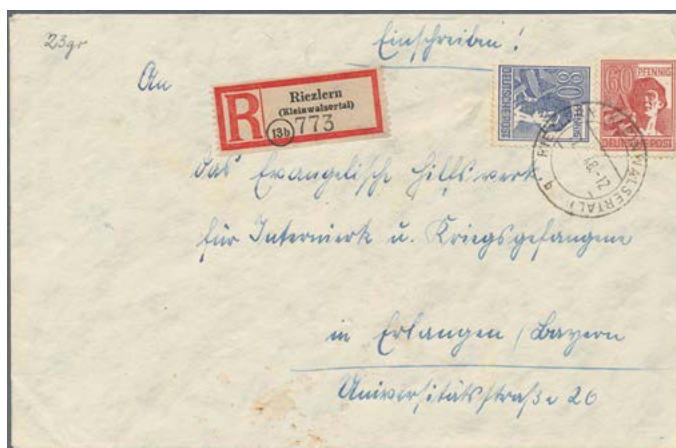 23gr
Einschreiben!
An
R
Riezlern
(Kleinwalsertal)
13b 773
80 PFENNIG
DEUTSCHE POST
60 PFENNIG
DEUTSCHE POST
das Evangelische Hilfswerk
für Internierte u. Kriegsgefangene
in Erlangen / Bayern
Universitätsstraße 26